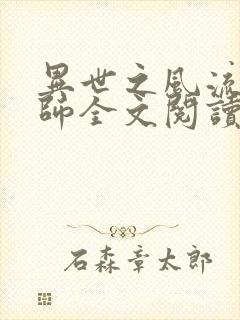 異世之風流
師全文閱讀
石森章太郎